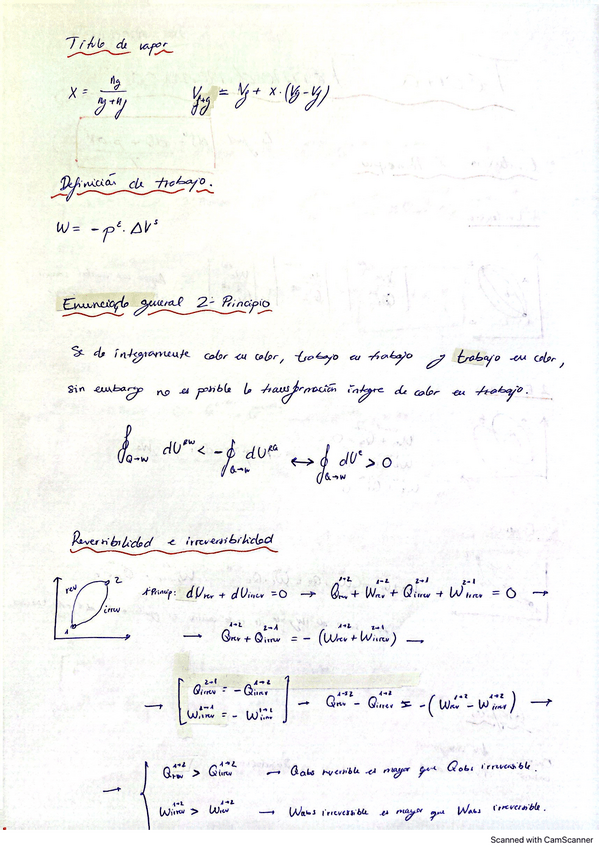 Título de vapor
X = ng / (ng + nf)   Vf+g = Vf + x·(Vg - Vf)
Definición de trabajo.
W = - pᵉ · ΔVˢ
Enunciado general 2º Principio
Se da integramente calor en calor, trabajo en trabajo y trabajo en calor,
sin embargo no es posible la transformación integra de calor en trabajo.
∮Q→W dU^RW < -∮Q→W dU^RQ ↔ ∮Q→W dUᵉ > 0
Reversibilidad e irreversibilidad
rev 2 irrev 1
1ºPrincip: dUrev + dUirrev = 0 → Qrev^1→2 + Wrev^1→2 + Qirrev^2→1 + Wirrev^2→1 = 0 →
→ Qrev^1→2 + Qirrev^2→1 = - (Wrev^1→2 + Wirrev^2→1) →
→ [Qirrev^2→1 = - Qirrev^1→2
Wirrev^2→1 = - Wirrev^1→2] → Qrev^1→2 - Qirrev^1→2 = -(Wrev^1→2 - Wirrev^1→2) →
→ { Qrev^1→2 > Qirrev^1→2 → Qabs reversible es mayor que Qabs irreversible.
Wirrev^1→2 > Wrev^1→2 → Wabs irreversible es mayor que Wabs irreversible.
Scanned with CamScanner